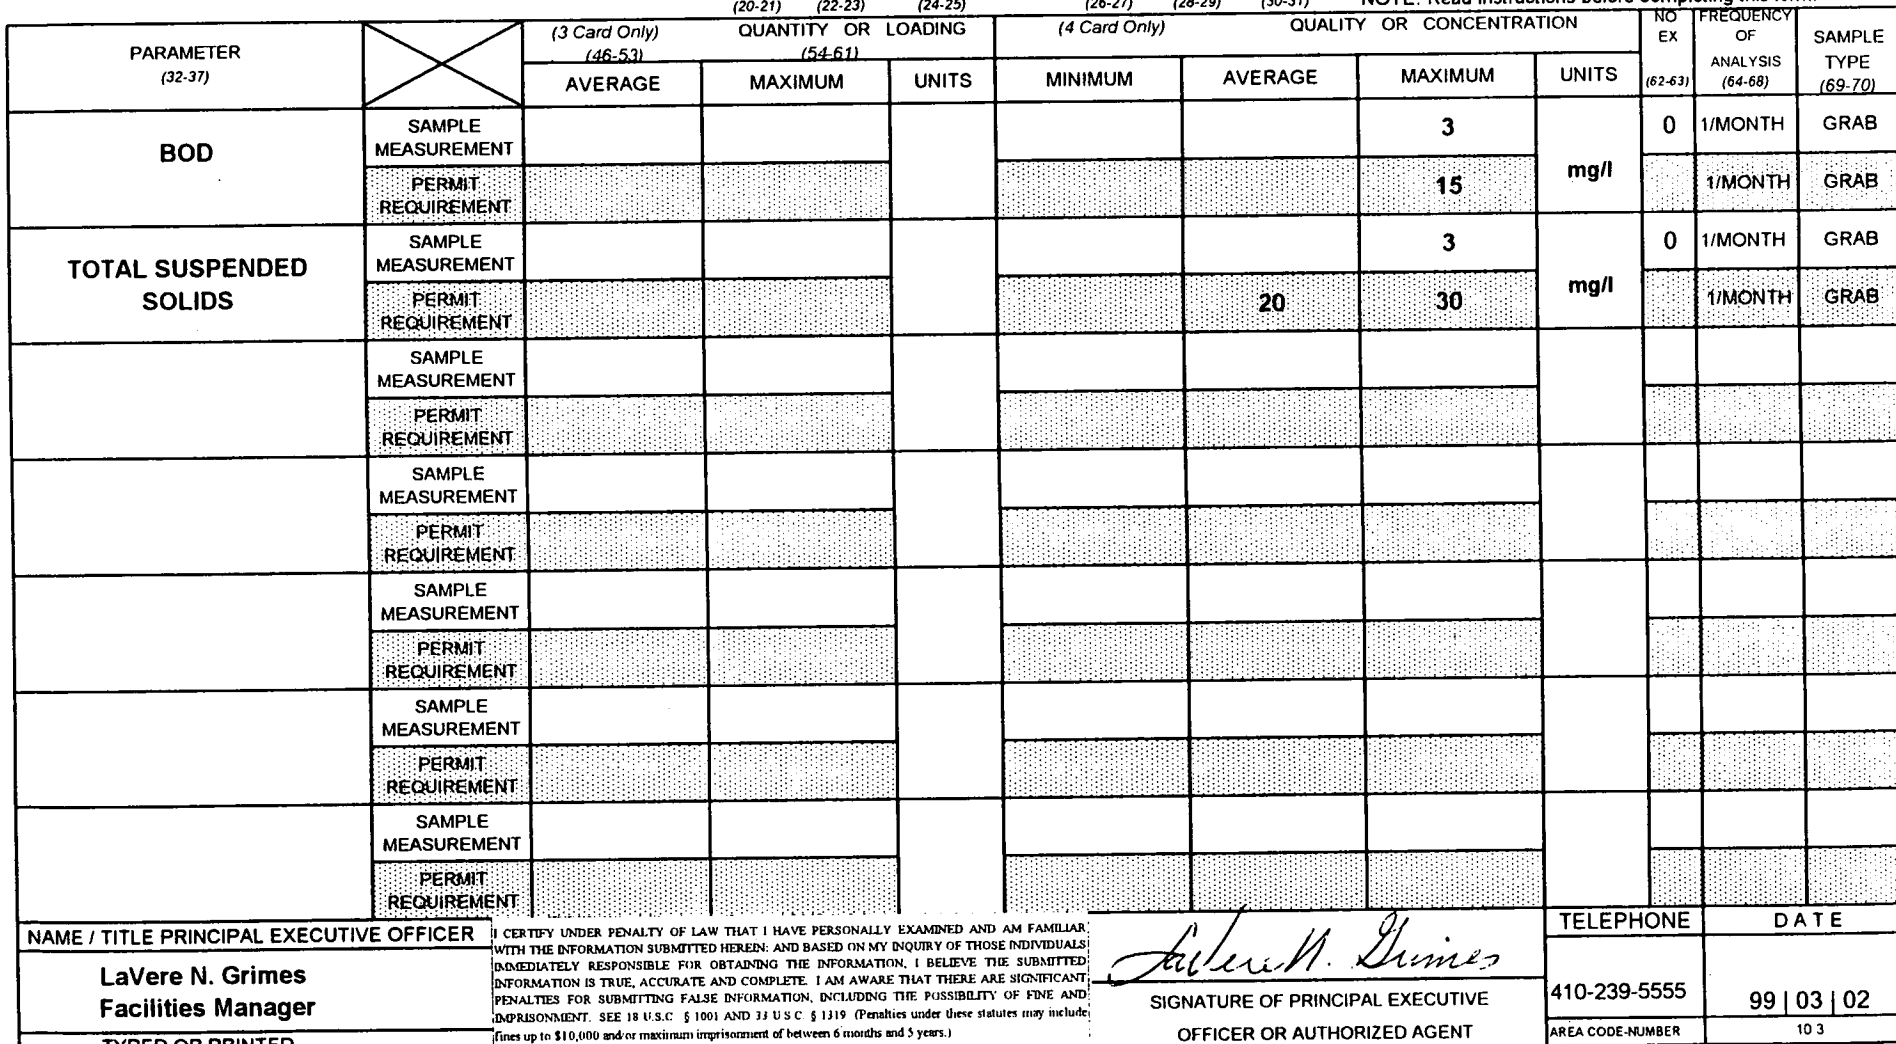 (20-21) (22-23) (24-25) (26-27) (28-29) (30-31) NOTE: Read instructions before completing this form.
PARAMETER
(32-37)
(3 Card Only) QUANTITY OR LOADING
(46-53) (54-61)
AVERAGE MAXIMUM UNITS
(4 Card Only) QUALITY OR CONCENTRATION
MINIMUM AVERAGE MAXIMUM UNITS
NO
EX
(62-63)
FREQUENCY
OF
ANALYSIS
(64-68)
SAMPLE
TYPE
(69-70)
BOD
SAMPLE
MEASUREMENT
3
mg/l
0 1/MONTH GRAB
PERMIT
REQUIREMENT
15
1/MONTH GRAB
TOTAL SUSPENDED
SOLIDS
SAMPLE
MEASUREMENT
3
mg/l
0 1/MONTH GRAB
PERMIT
REQUIREMENT
20 30
1/MONTH GRAB
SAMPLE
MEASUREMENT
PERMIT
REQUIREMENT
SAMPLE
MEASUREMENT
PERMIT
REQUIREMENT
SAMPLE
MEASUREMENT
PERMIT
REQUIREMENT
SAMPLE
MEASUREMENT
PERMIT
REQUIREMENT
SAMPLE
MEASUREMENT
PERMIT
REQUIREMENT
NAME / TITLE PRINCIPAL EXECUTIVE OFFICER
LaVere N. Grimes
Facilities Manager
TYPED OR PRINTED
I CERTIFY UNDER PENALTY OF LAW THAT I HAVE PERSONALLY EXAMINED AND AM FAMILIAR
WITH THE INFORMATION SUBMITTED HEREIN: AND BASED ON MY INQUIRY OF THOSE INDIVIDUALS
IMMEDIATELY RESPONSIBLE FOR OBTAINING THE INFORMATION, I BELIEVE THE SUBMITTED
INFORMATION IS TRUE, ACCURATE AND COMPLETE. I AM AWARE THAT THERE ARE SIGNIFICANT
PENALTIES FOR SUBMITTING FALSE INFORMATION, INCLUDING THE POSSIBILITY OF FINE AND
IMPRISONMENT. SEE 18 U.S.C. § 1001 AND 33 U S C. § 1319 (Penalties under these statutes may include
fines up to $10,000 and/or maximum imprisonment of between 6 months and 5 years.)
LaVere N. Grimes
SIGNATURE OF PRINCIPAL EXECUTIVE
OFFICER OR AUTHORIZED AGENT
TELEPHONE
410-239-5555
AREA CODE-NUMBER
DATE
99 | 03 | 02
10 3